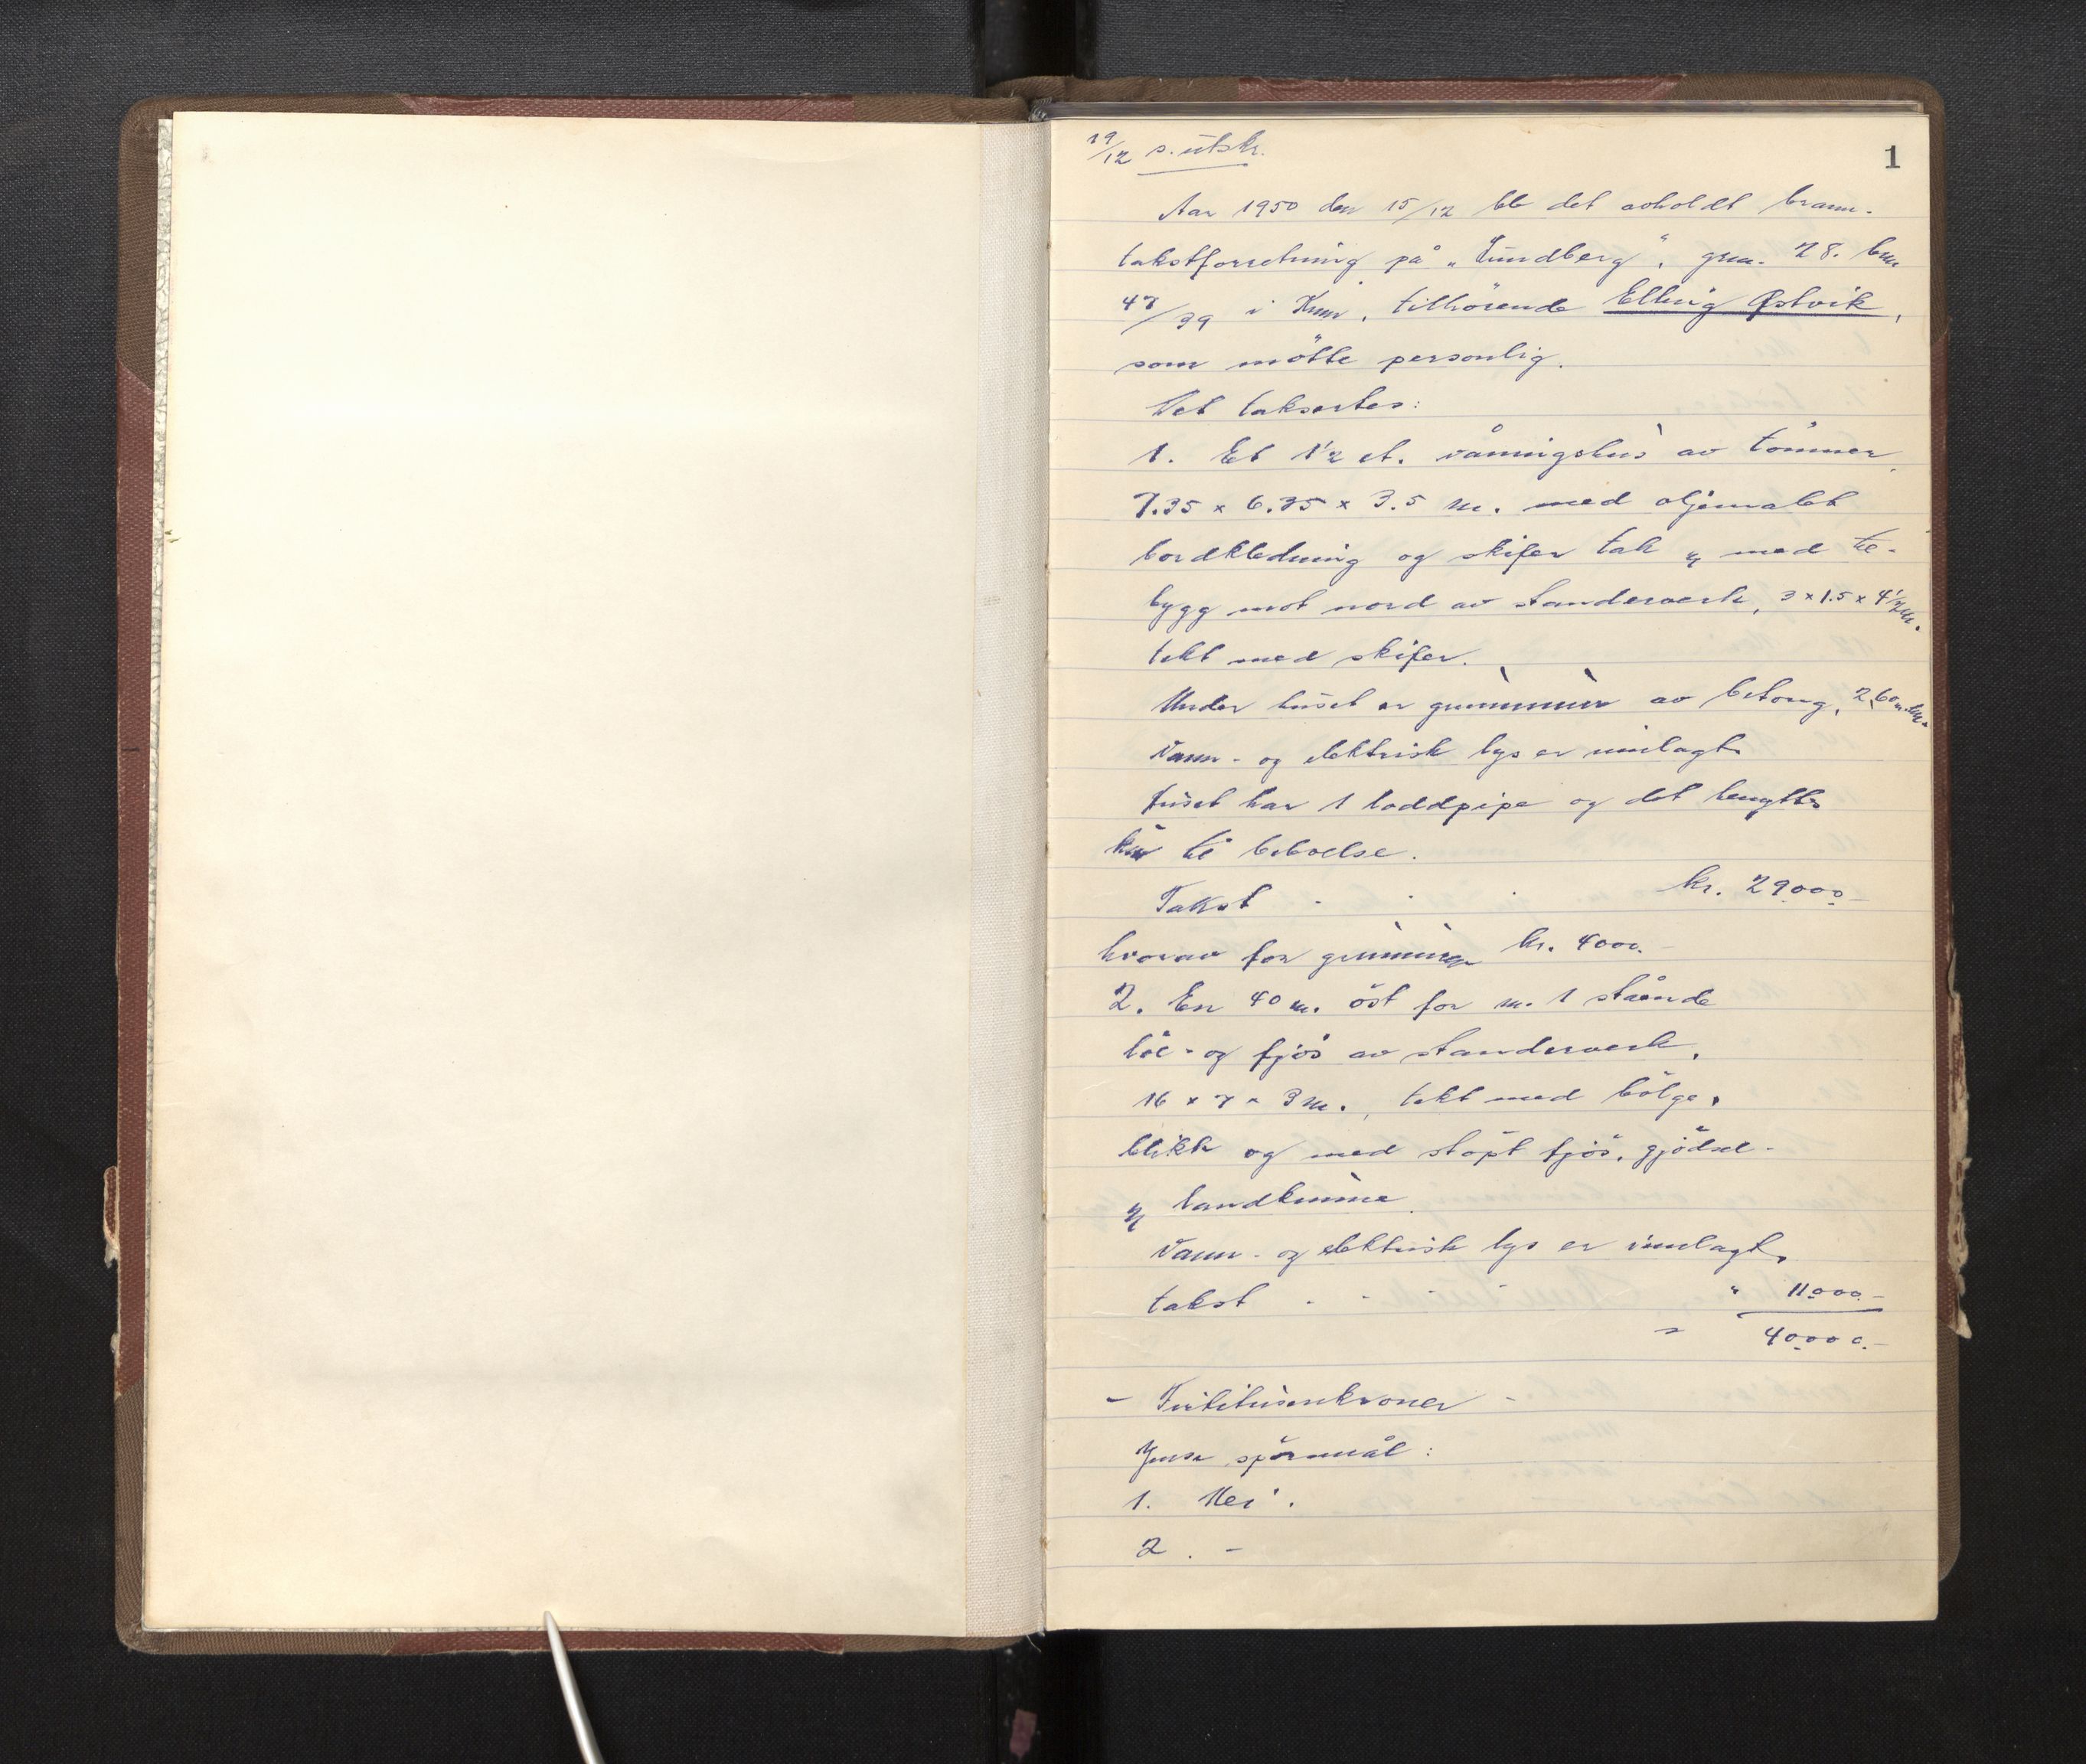 19/12 s. utskr.
1
Aar 1950 den 15/12 ble det avholdt brann-
takstforretning på „Lundberg", gnr. 28. bnr
47/39 i Kmr, tilhörende Elling Østvik,
som mötte personlig.
Det taksertes:
1. Et 1½ et. våningshus av tömmer
7.35 x 6.35 x 3.5 m. med oljemalt
bordkledning og skifer tak og med til-
bygg mot nord av standerverk, 3 x 1.5 x 4½ m.
tekt med skifer.
Under huset er grunnmur av betong, 2,60 m.
Vann- og elektrisk lys er innlagt.
Huset har 1 loddpipe og det benyttes
kun til beboelse.
Takst - - - kr. 29000.-
hvorav for grunnmur kr. 4000.-
2. En 40 m. öst for nr. 1 stående
löe- og fjös av standerverk,
16 x 7 x 3 m., tekt med bölge-
blikk og med stöpt fjös, gjödsel-
og landkumme.
Vann- og elektrisk lys er innlagt.
takst - - - - " 11000.-
" 40000.-
- Förtitusenkroner -
Jmsr spörsmål:
1. Nei.
2. -